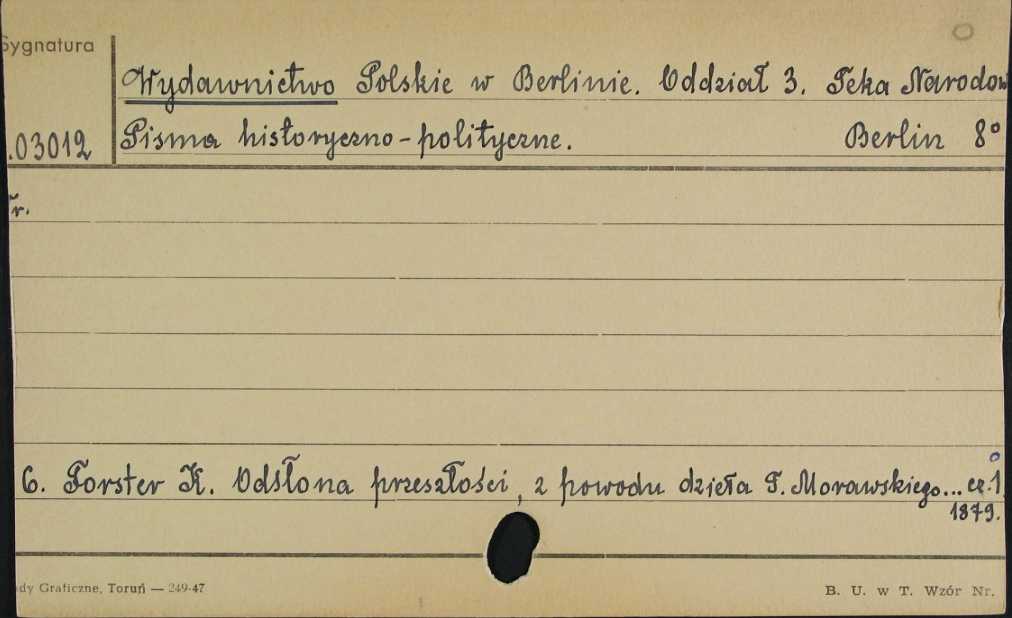 Sygnatura
Wydawnictwo Polskie w Berlinie. Oddział 3. Teka Narodow
.03012 Pisma historyczno-polityczne. Berlin 8°
r.
6. Forster K. Odsłona przeszłości, z powodu dzieła T. Morawskiego... cz.1
1879.
dy Graficzne, Toruń — 249-47 B. U. w T. Wzór Nr.